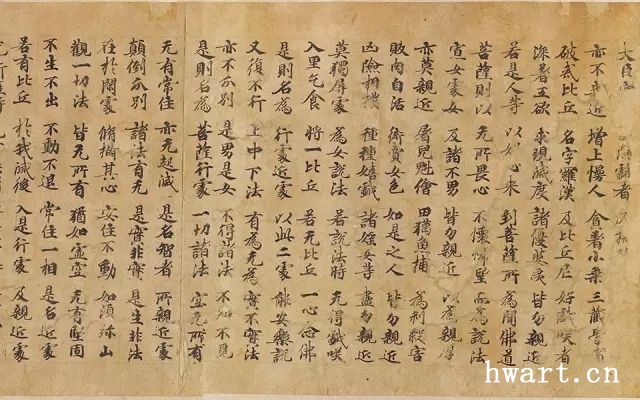 大臣
亦不親近 增上慢人 貪著小乘 三藏學者
破戒比丘 名字羅漢 及比丘尼 好戲咲者
深著五欲 求現滅度 諸優婆夷 皆勿親近
若是人等 以好心來 到菩薩所 為聞佛道
菩薩則以 无所畏心 不懷悕望 而為說法
寡女處女 及諸不男 皆勿親近 以為親厚
亦莫親近 屠兒魁膾 田獵魚捕 為利殺害
販肉自活 衒賣女色 如是之人 皆勿親近
凶險相撲 種種嬉戲 諸婬女等 盡勿親近
莫獨屏處 為女說法 若說法時 无得戲咲
入里乞食 將一比丘 若无比丘 一心念佛
是則名為 行處近處 以此二處 能安樂說
又復不行 上中下法 有為无為 實不實法
亦不分別 是男是女 不得諸法 不知不見
是則名為 菩薩行處 一切諸法 空无所有
无有常住 亦无起滅 是名智者 所親近處
顛倒分別 諸法有无 是實非實 是生非生
在於閑處 脩攝其心 安住不動 如須弥山
觀一切法 皆无所有 猶如虛空 无有堅固
不生不出 不動不退 常住一相 是名近處
若有比丘 於我滅後 入是行處 及親近處
hwart.cn